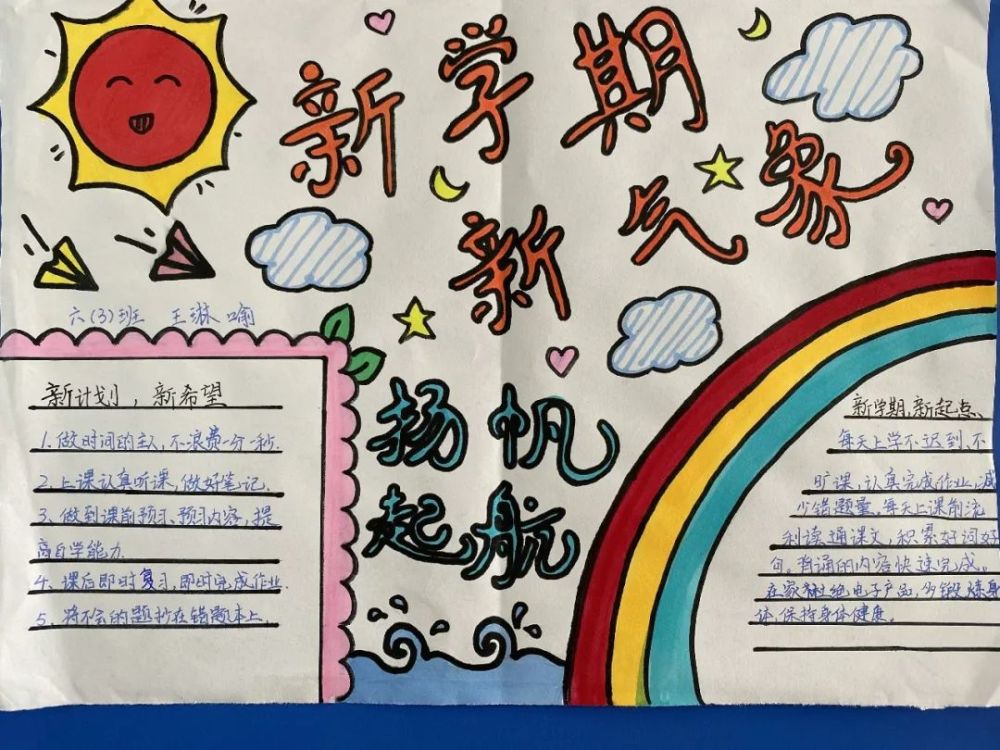 新学期
新气象
扬帆
起航
六(3)班 王琳喻
新计划，新希望
1. 做时间的主人，不浪费一分一秒.
2. 上课认真听课，做好笔记.
3. 做到课前预习、预习内容，提
高自学能力.
4. 课后即时复习，即时完成作业.
5. 将不会的题抄在错题本上.
新学期，新起点、
每天上学不迟到、不
旷课，认真完成作业，减
少错题量，每天上课前流
利读通课文，积累好词好
句。背诵的内容快速完成。
在家杜绝电子产品，多锻炼身
体，保持身体健康。